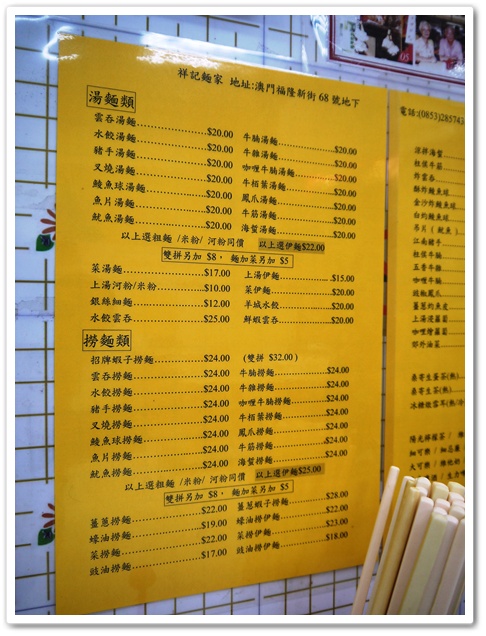 祥記麵家 地址:澳門福隆新街 68 號地下
湯麵類
雲吞湯麵 $20.00 牛腩湯麵 $20.00
水餃湯麵 $20.00 牛雜湯麵 $20.00
豬手湯麵 $20.00 咖喱牛腩湯麵 $20.00
叉燒湯麵 $20.00 牛栢葉湯麵 $20.00
鯪魚球湯麵 $20.00 鳳爪湯麵 $20.00
魚片湯麵 $20.00 牛筋湯麵 $20.00
魷魚湯麵 $20.00 海蜇湯麵 $20.00
以上選粗麵 /米粉/ 河粉同價 以上選伊麵$22.00
雙拼另加 $8， 麵加菜另加 $5
菜湯麵 $17.00 上湯伊麵 $15.00
上湯河粉/米粉 $10.00 菜伊麵 $20.00
銀絲細麵 $12.00 羊城水餃 $20.00
水餃雲吞 $25.00 鮮蝦雲吞 $20.00
撈麵類
招牌蝦子撈麵 $24.00 (雙拼 $32.00 )
雲吞撈麵 $24.00 牛腩撈麵 $24.00
水餃撈麵 $24.00 牛雜撈麵 $24.00
豬手撈麵 $24.00 咖喱牛腩撈麵 $24.00
叉燒撈麵 $24.00 牛栢葉撈麵 $24.00
鯪魚球撈麵 $24.00 鳳爪撈麵 $24.00
魚片撈麵 $24.00 牛筋撈麵 $24.00
魷魚撈麵 $24.00 海蜇撈麵 $24.00
以上選粗麵 /米粉/ 河粉同價 以上選伊麵$25.00
雙拼另加 $8， 麵加菜另加 $5
薑蔥撈麵 $22.00 薑蔥蝦子撈麵 $28.00
蠔油撈麵 $19.00 蠔油撈伊麵 $22.00
菜撈麵 $22.00 菜撈伊麵 $23.00
豉油撈麵 $17.00 豉油撈伊麵 $18.00
電話:(0853)285743
涼拌海蜇
柱侯牛筋
炸雲吞
酥炸鯪魚球
金沙炸鯪魚球
白灼鯪魚球
吊片 ( 魷魚 )
江南豬手
柱侯牛腩
五香牛雜
咖喱牛腩
豉椒鳳爪
薑蔥灼魚皮
上湯浸蘿蔔
咖喱燴蘿蔔
郊外油菜
桑寄生蛋茶(熱)
桑寄生茶(熱)